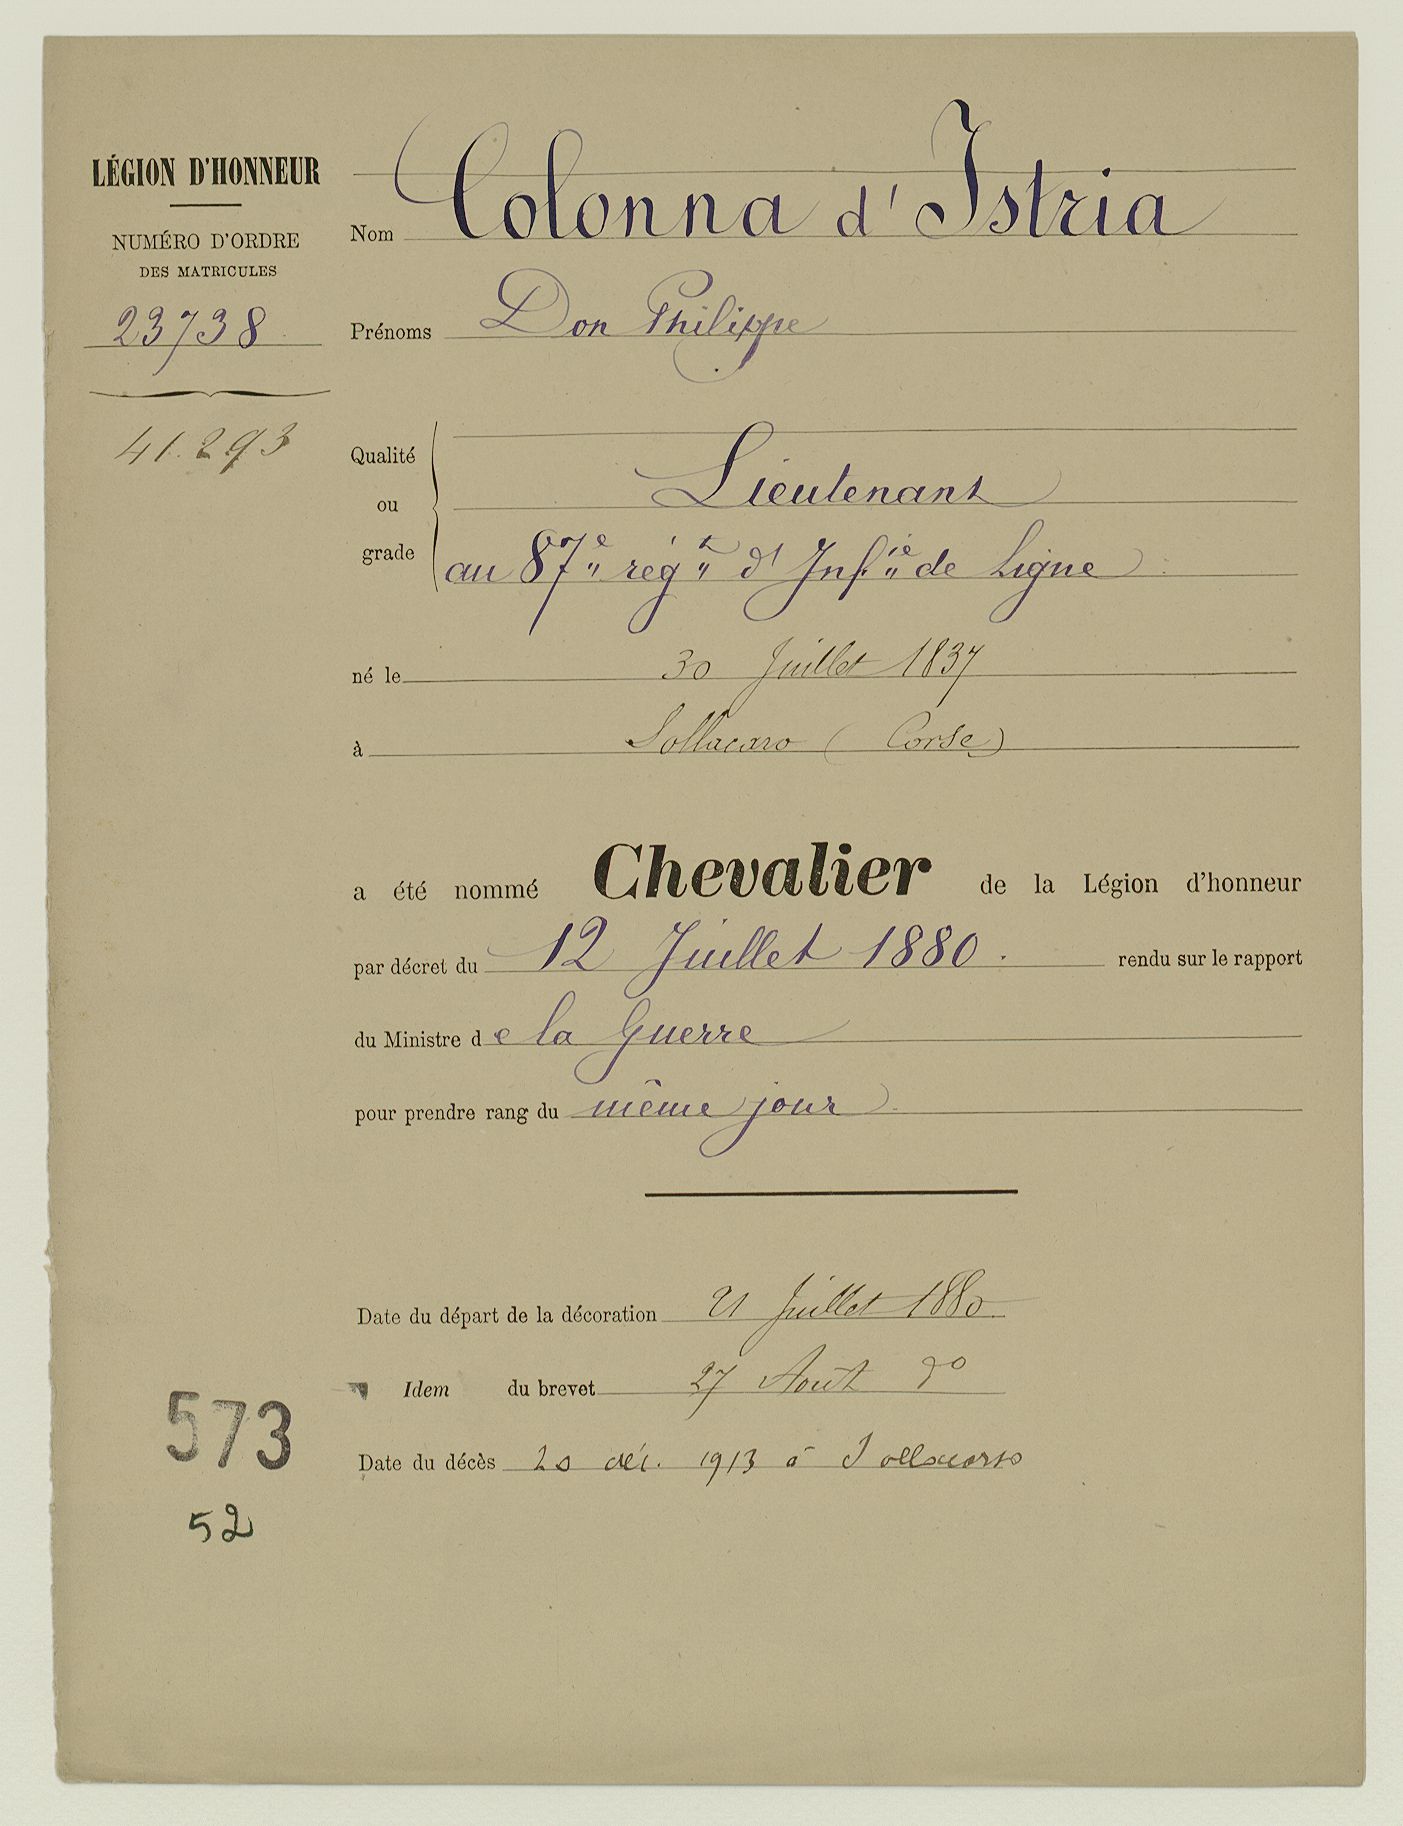 LÉGION D'HONNEUR
NUMÉRO D'ORDRE
DES MATRICULES
23738
41.293
Nom Colonna d'Istria
Prénoms Don Philippe
Qualité
ou
grade
Lieutenant
au 87e régt d'Infie de Ligne
né le 30 Juillet 1837
à Sollacaro (Corse)
a été nommé Chevalier de la Légion d'honneur
par décret du 12 Juillet 1880. rendu sur le rapport
du Ministre de la Guerre
pour prendre rang du même jour
Date du départ de la décoration 21 Juillet 1880.
Idem du brevet 27 Août do
Date du décès 20 déc. 1913 à Sollacaro
573
52